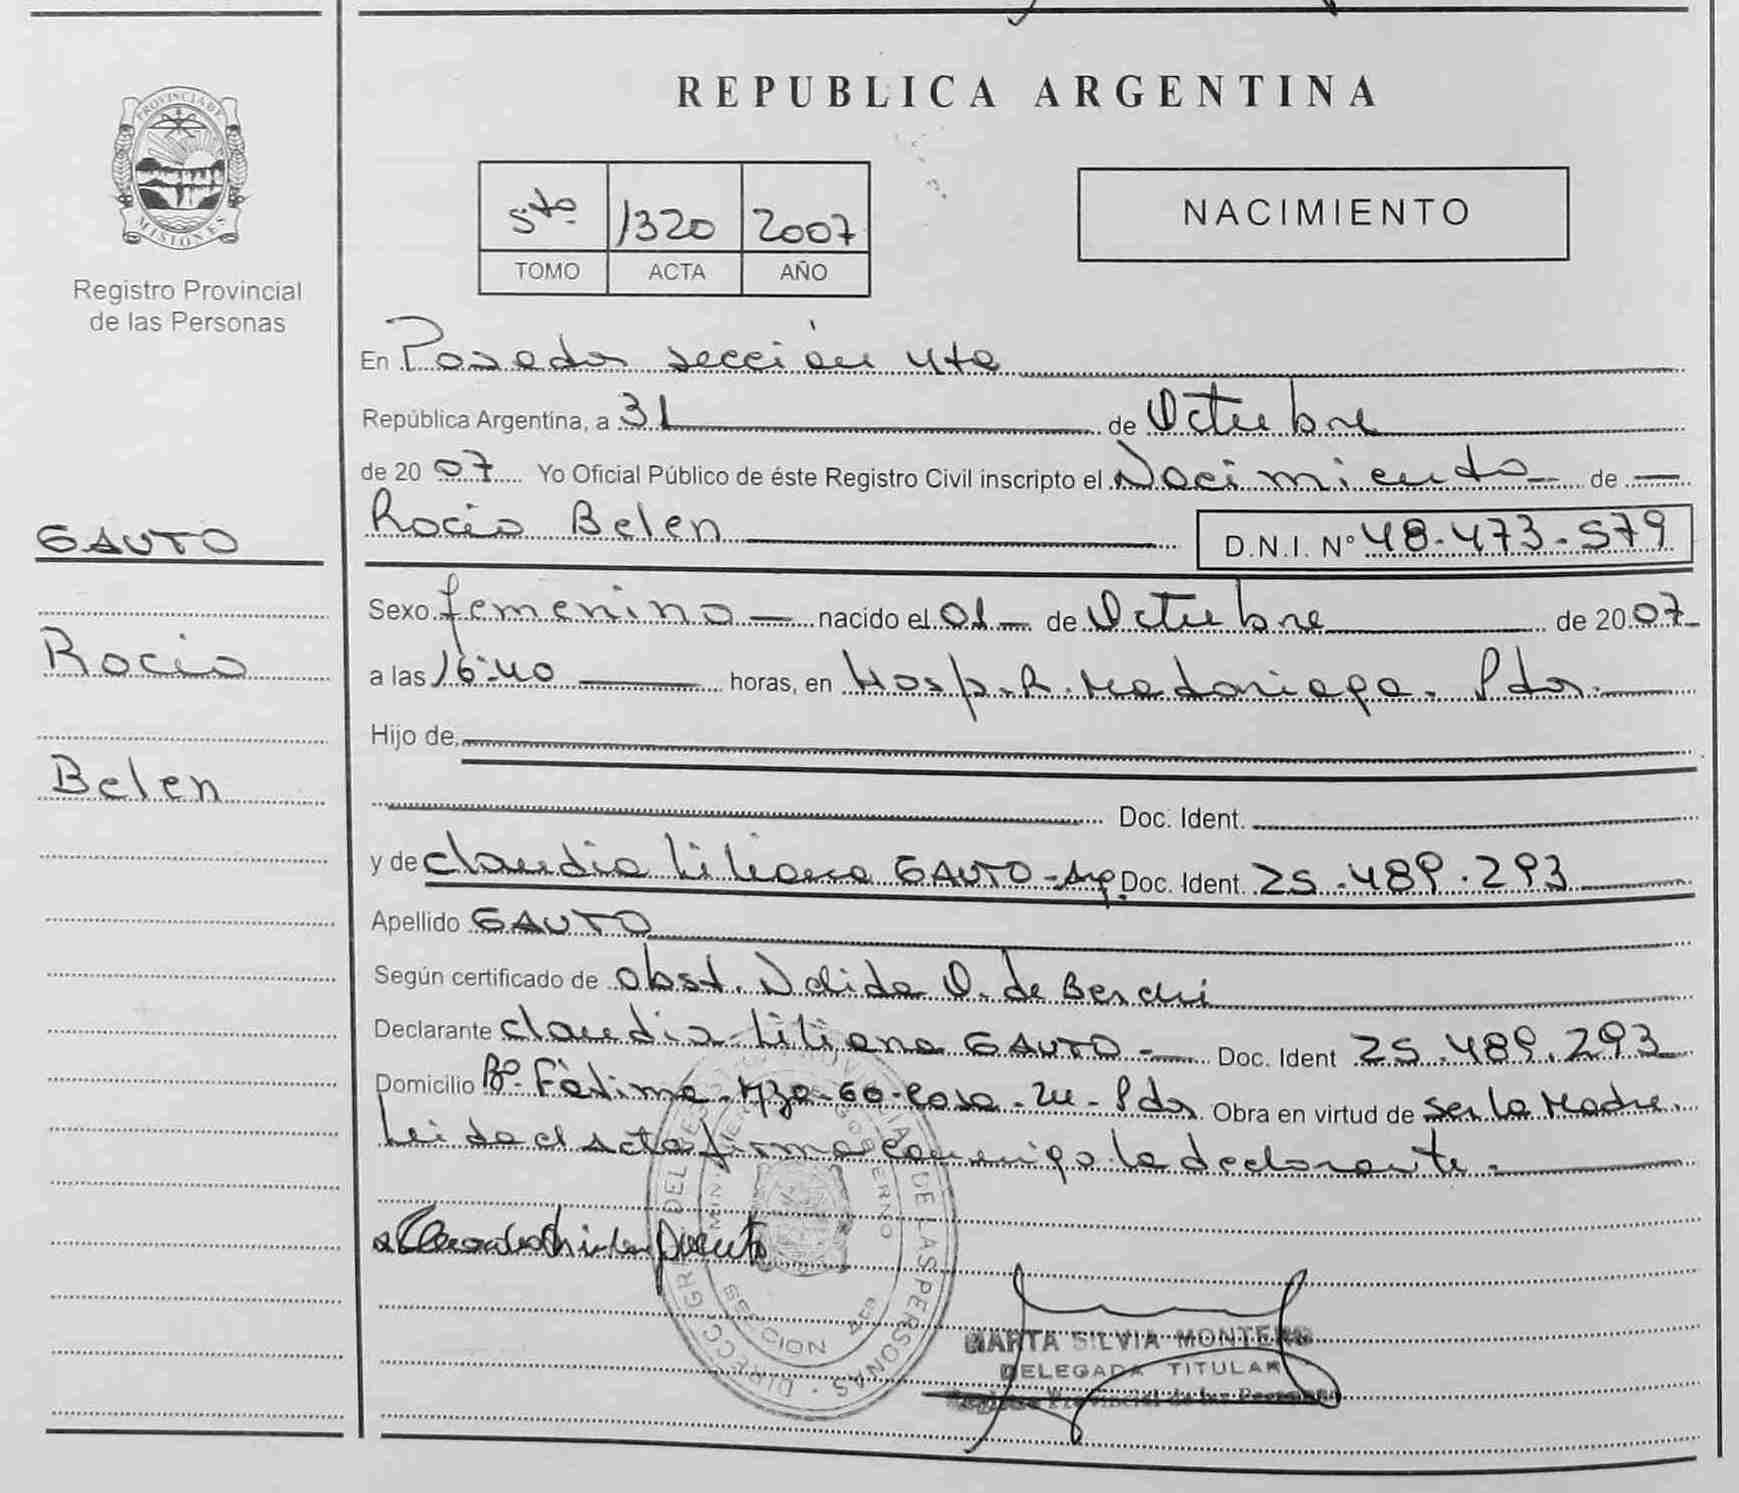 REPUBLICA ARGENTINA
PROVINCIA DE MISIONES
Registro Provincial
de las Personas
5to 1320 2007
TOMO ACTA AÑO
NACIMIENTO
En Posadas sección 4ta
República Argentina, a 31 de Octubre
de 2007 Yo Oficial Público de éste Registro Civil inscripto el Nacimiento de
Rocio Belen D.N.I. Nº 48.473.579
GAUTO
Rocio
Belen
Sexo femenino nacido el 01 de Octubre de 2007
a las 16:40 horas, en Hosp. R. Madariaga. Pdas.
Hijo de
Doc. Ident.
y de Claudia Liliana GAUTO - Arg. Doc. Ident. 25.489.293
Apellido GAUTO
Según certificado de Obst. Nelida O. de
Declarante Claudia Liliana GAUTO - Doc. Ident 25.489.293
Domicilio Bº. Fátima - Mza - 60 - Casa - 24 - Pdas Obra en virtud de ser la Madre.
Leida el acta firma conmigo la declarante.
DIRECC. GRAL. DEL REGISTRO PROVINCIAL DE LAS PERSONAS
MINISTERIO DE GOBIERNO
SECCION 4ta
MARTA SILVIA MONTERO
DELEGADA TITULAR
Registro Provincial de las Personas